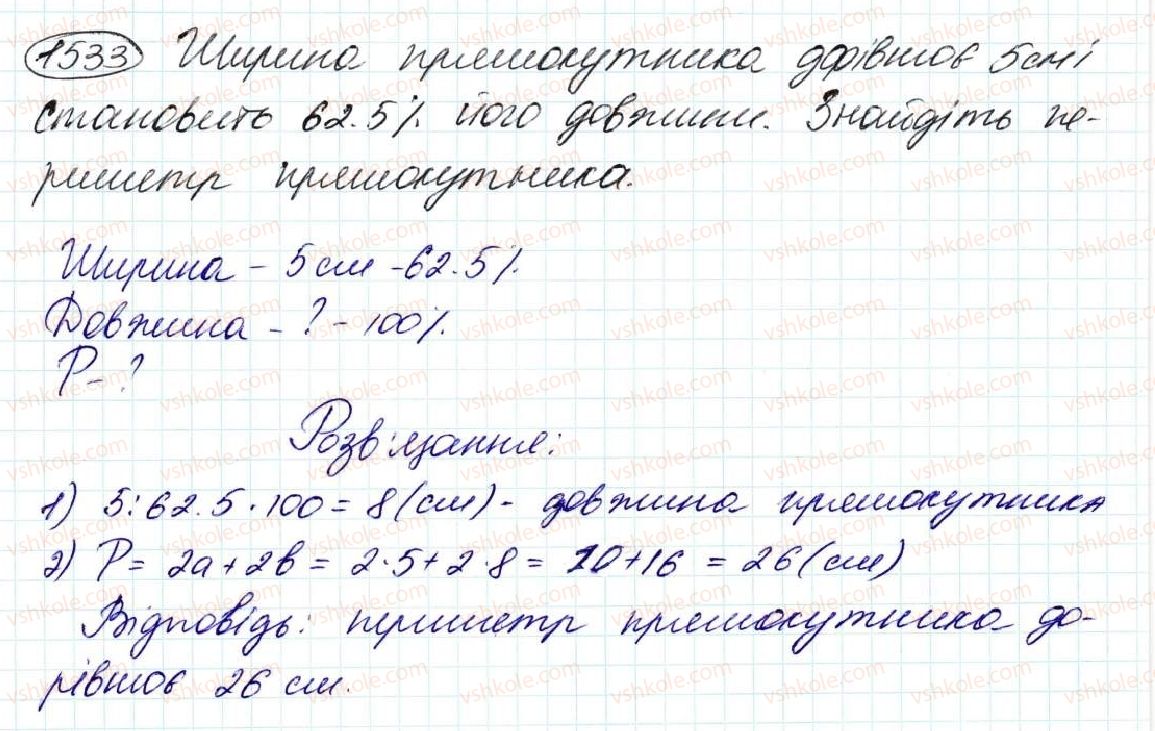 1533 Ширина прямокутника дорівнює 5см і
становить 62.5% його довжини. Знайдіть пе-
риметр прямокутника.
Ширина - 5см - 62.5%
Довжина - ? - 100%
P - ?
Розв'язання:
1) 5:62.5·100=8(см) - довжина прямокутника
2) P= 2a+2b = 2·5+2·8 = 10+16 = 26(см)
Відповідь: периметр прямокутника до-
рівнює 26 см.